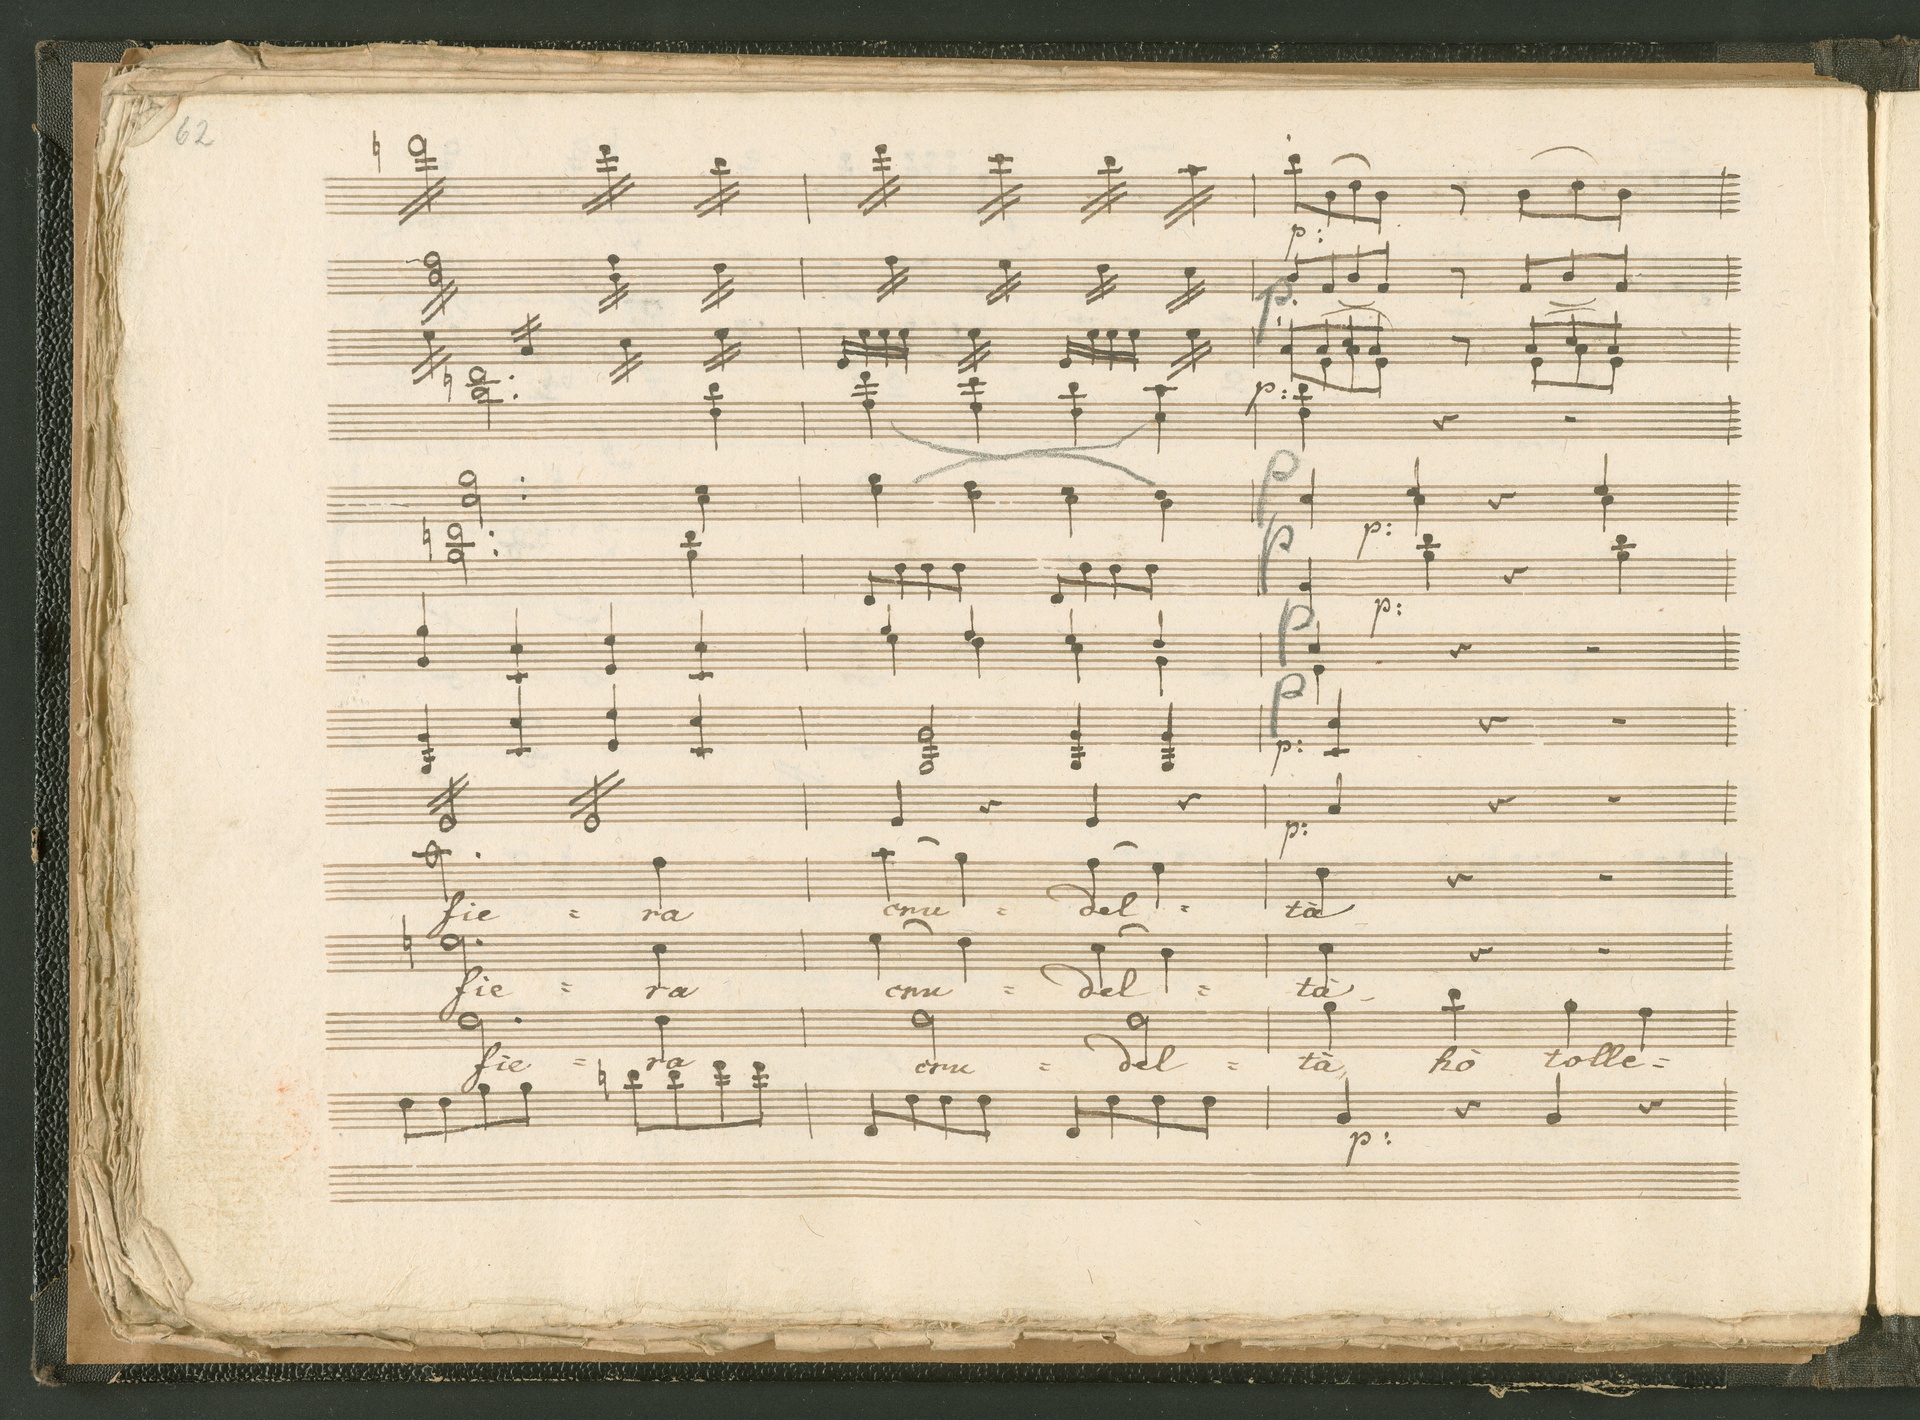 62
p:
p:
p:
p
p:
p
p:
p
p
p:
p:
fie = ra cru = del = tà
fie = ra cru = del = tà
fie = ra cru = del = tà, hò tolle =
p: